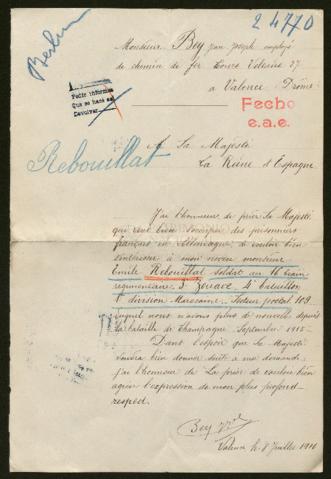 24770
Berlin
Monsieur Bey jean joseph employé
de chemin de fer
à Valence Drôme
Pedir informes
Que se hará al
Devolver
Fecho
e.a.e.
A Sa Majesté
La Reine d'Espagne
Rebouillat
J'ai l'honneur de prier Sa Majesté
qui veut bien s'occuper des prisonniers
français en Allemagne de vouloir bien
s'intéresser à mon neveu monsieur
Emile Rebouillat soldat au 16
régimentaire 3e zouave 4e bataillon
1re division Marocaine Secteur postal 109
duquel nous n'avons plus de nouvelle depuis
la bataille de Champagne Septembre 1915
Dans l'espoir que Sa Majesté
voudra bien donner suite à ma demande
j'ai l'honneur de La prier de vouloir bien
agréer l'expression de mon plus profond
respect.
Bey
Valence le 8 Juillet 1916